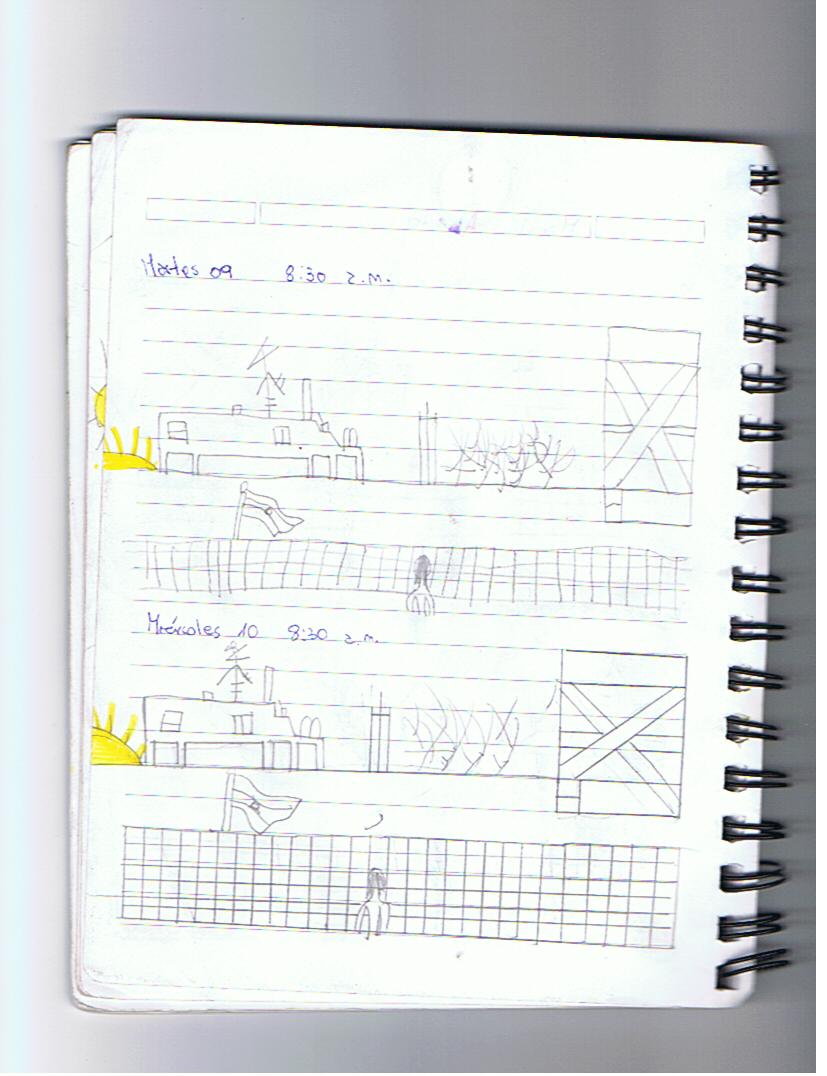 Martes 09 8:30 a.m.
Miércoles 10 8:30 a.m.